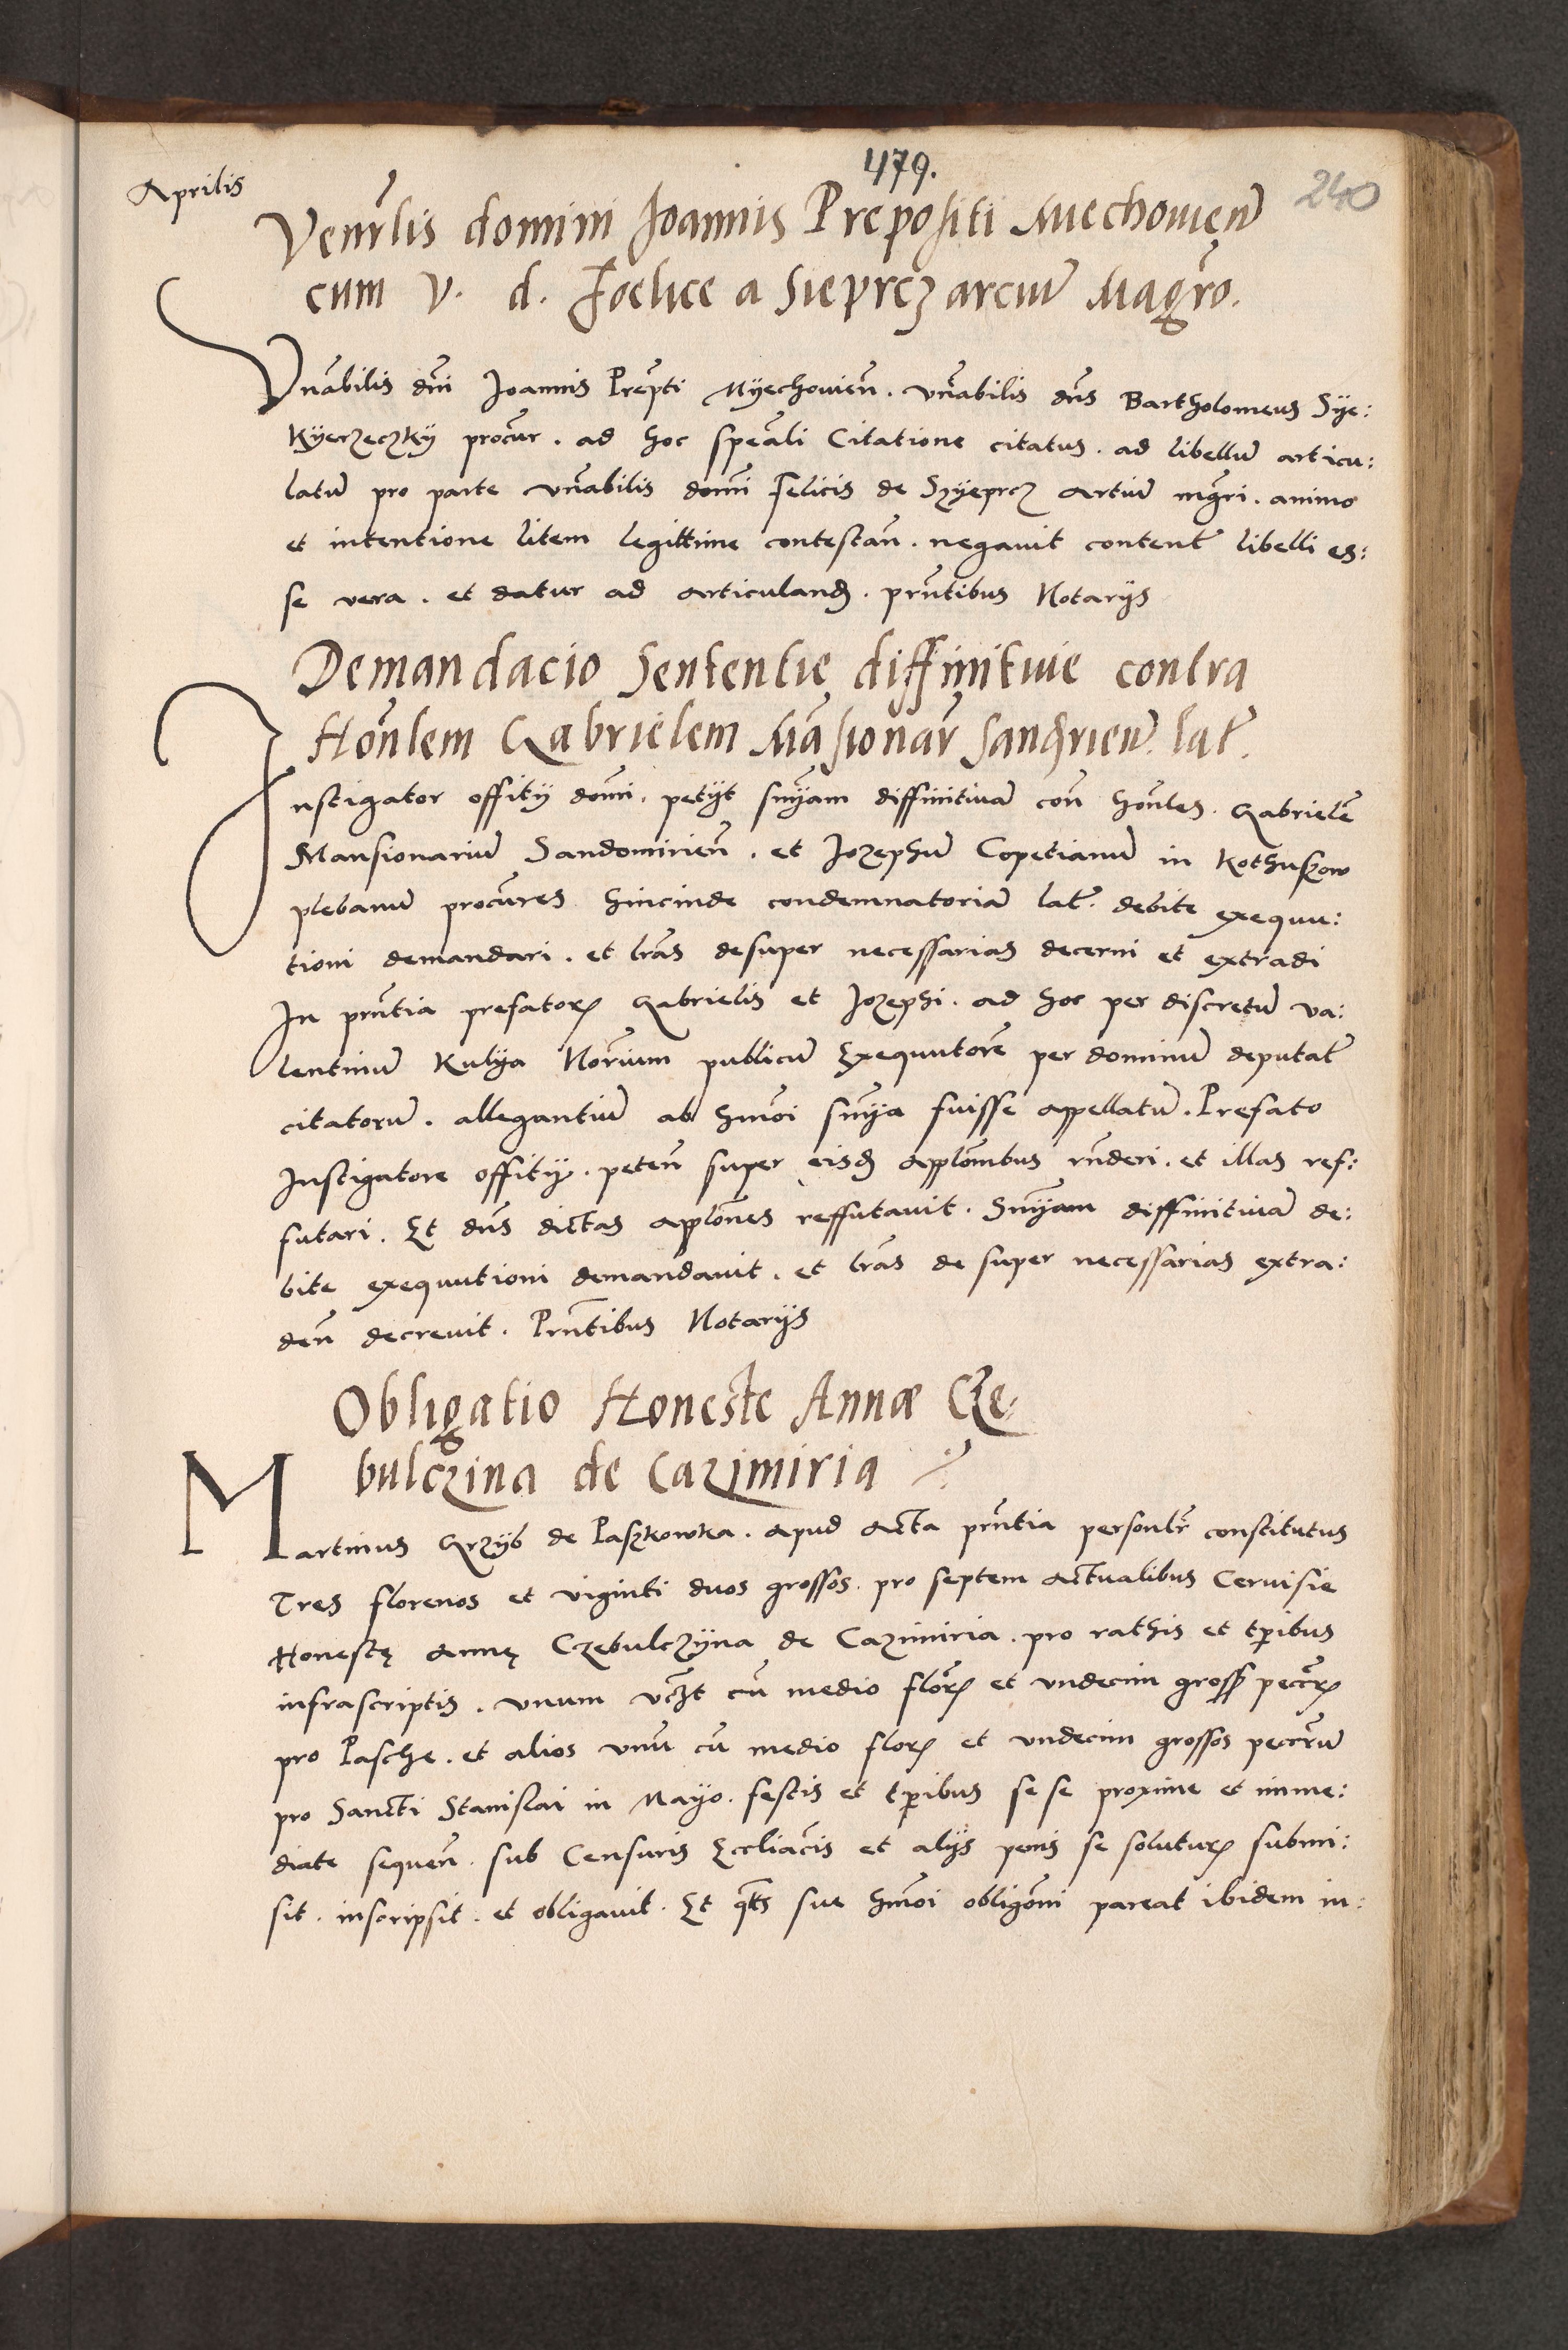 479.
240
Aprilis
Venrlis domini Joannis Prepositi Miechouien
cum V. d. Foelice a Sieprcz arcium Magro.
Vnabilis dni Joannis Prepti Myechouien. vnabilis dns Bartholomeus Sye:
kyerzeczky procur. ad hoc speali Citatione citatus. ad libellum articu:
latum pro parte vnabilis domi Felicis de Szyeprcz artium mgri. animo
et intentione litem legittime contestan. negauit content libelli es:
se vera. et datur ad articuland. prntibus Notarijs
Demandacio Sententie diffinitiue contra
Honlem Gabrielem Masionar Sandrien. lat.
Instigator offitij domi. petijt sniam diffinitiua con honles. Gabriele
Mansionarium Sandomirien. et Jozephum Copetianum in Kothuszow
plebanum procures hincinde condemnatoriam lat. debite exequu:
tioni demandari. et lras desuper necessarias decerni et extradi
In prntia prefator Gabrielis et Jozephi. ad hoc per discretum va:
lentinum Kulya Norium publicum Exequutore per dominum deputat
citatorum. allegantium ab hmoi snia fuisse appellatum. Prefato
Instigatore offitij. peten super eisd applombus rnderi. et illas ref:
futari. Et dns dictas applones reffutauit. Sniam diffinitiua de:
bite exequutioni demandauit. et lras de super necessarias extra:
den decreuit. Prntibus Notarijs
Obligatio Honeste Annæ Cze:
bulczina de Cazimiria
Martinus Grzyb de Paszkowka. apud acta prntia personlr constitutus
Tres florenos et viginti duos grossos. pro septem actualibus Ceruisie
Honestę annę Czebulczyna de Cazimiria. pro rathis et tpibus
infrascriptis. vnum vczt cu medio flor et vndecim gross peccr
pro Pasche. et alios vnu cu medio flor et vndecim grossos peccrum
pro Sancti Stanislai in Mayo. festis et tpibus se se proxime et imme:
diate sequen. sub Censuris Eccliacis et alijs penis se solutur submi:
sit. inscripsit. et obligauit. Et qts sue hmoi obligoni pareat ibidem in: